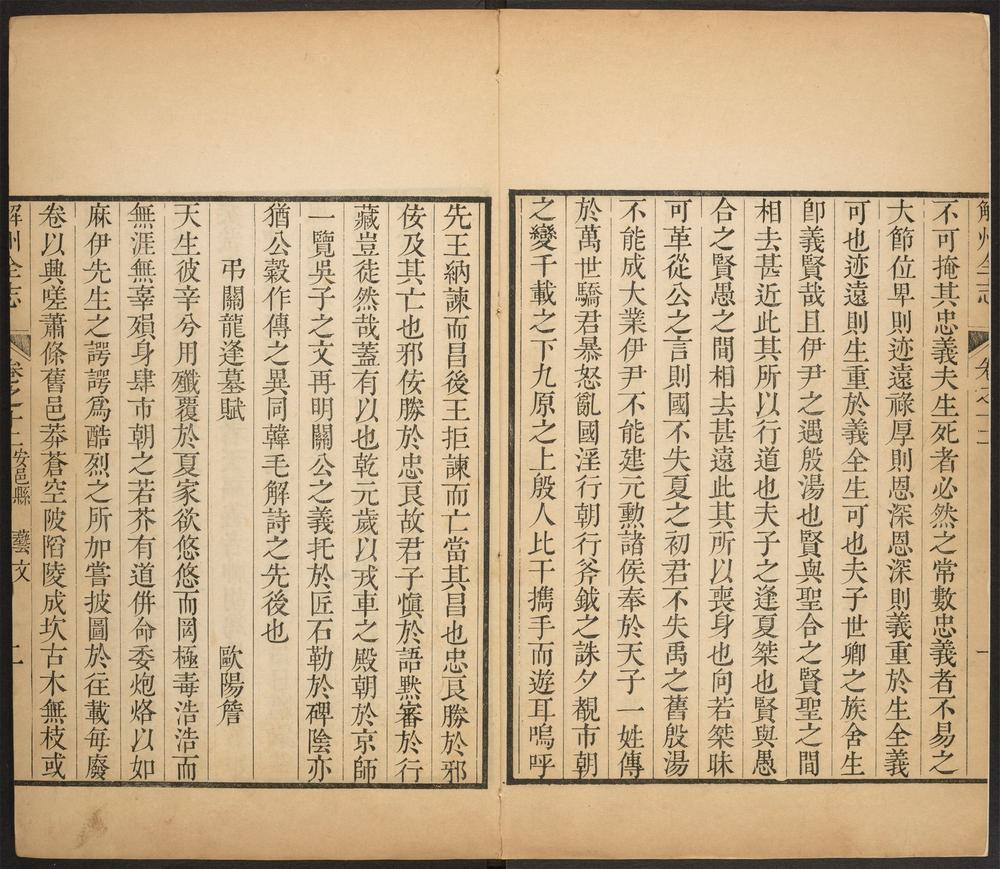 解州全志 卷之十二 一
不可掩其忠義夫生死者必然之常數忠義者不易之
大節位卑則迹遠祿厚則恩深恩深則義重於生全義
可也迹遠則生重於義全生可也夫子世卿之族舍生
卽義賢哉且伊尹之遇殷湯也賢與聖合之賢聖之間
相去甚近此其所以行道也夫子之逢夏桀也賢與愚
合之賢愚之間相去甚遠此其所以喪身也向若桀昧
可革從公之言則國不失夏之初君不失禹之舊殷湯
不能成大業伊尹不能建元勲諸侯奉於天子一姓傳
於萬世驕君暴怒亂國淫行朝行斧鉞之誅夕覩市朝
之變千載之下九原之上殷人比干擕手而遊耳嗚呼
先王納諫而昌後王拒諫而亡當其昌也忠良勝於邪
侫及其亡也邪侫勝於忠良故君子愼於語默審於行
藏豈徒然哉蓋有以也乾元歲以戎車之殿朝於京師
一覽吳子之文再明關公之義托於匠石勒於碑陰亦
猶公穀作傳之異同韓毛解詩之先後也
弔關龍逢墓賦 歐陽詹
天生彼辛兮用殲覆於夏家欲悠悠而罔極毒浩浩而
無涯無辜殞身肆市朝之若芥有道倂命委炮烙以如
麻伊先生之諤諤爲酷烈之所加嘗披圖於往載每廢
卷以興嗟蕭條舊邑莽蒼空陂陷陵成坎古木無枝或
解州全志 卷之十二 安邑縣 藝文 二